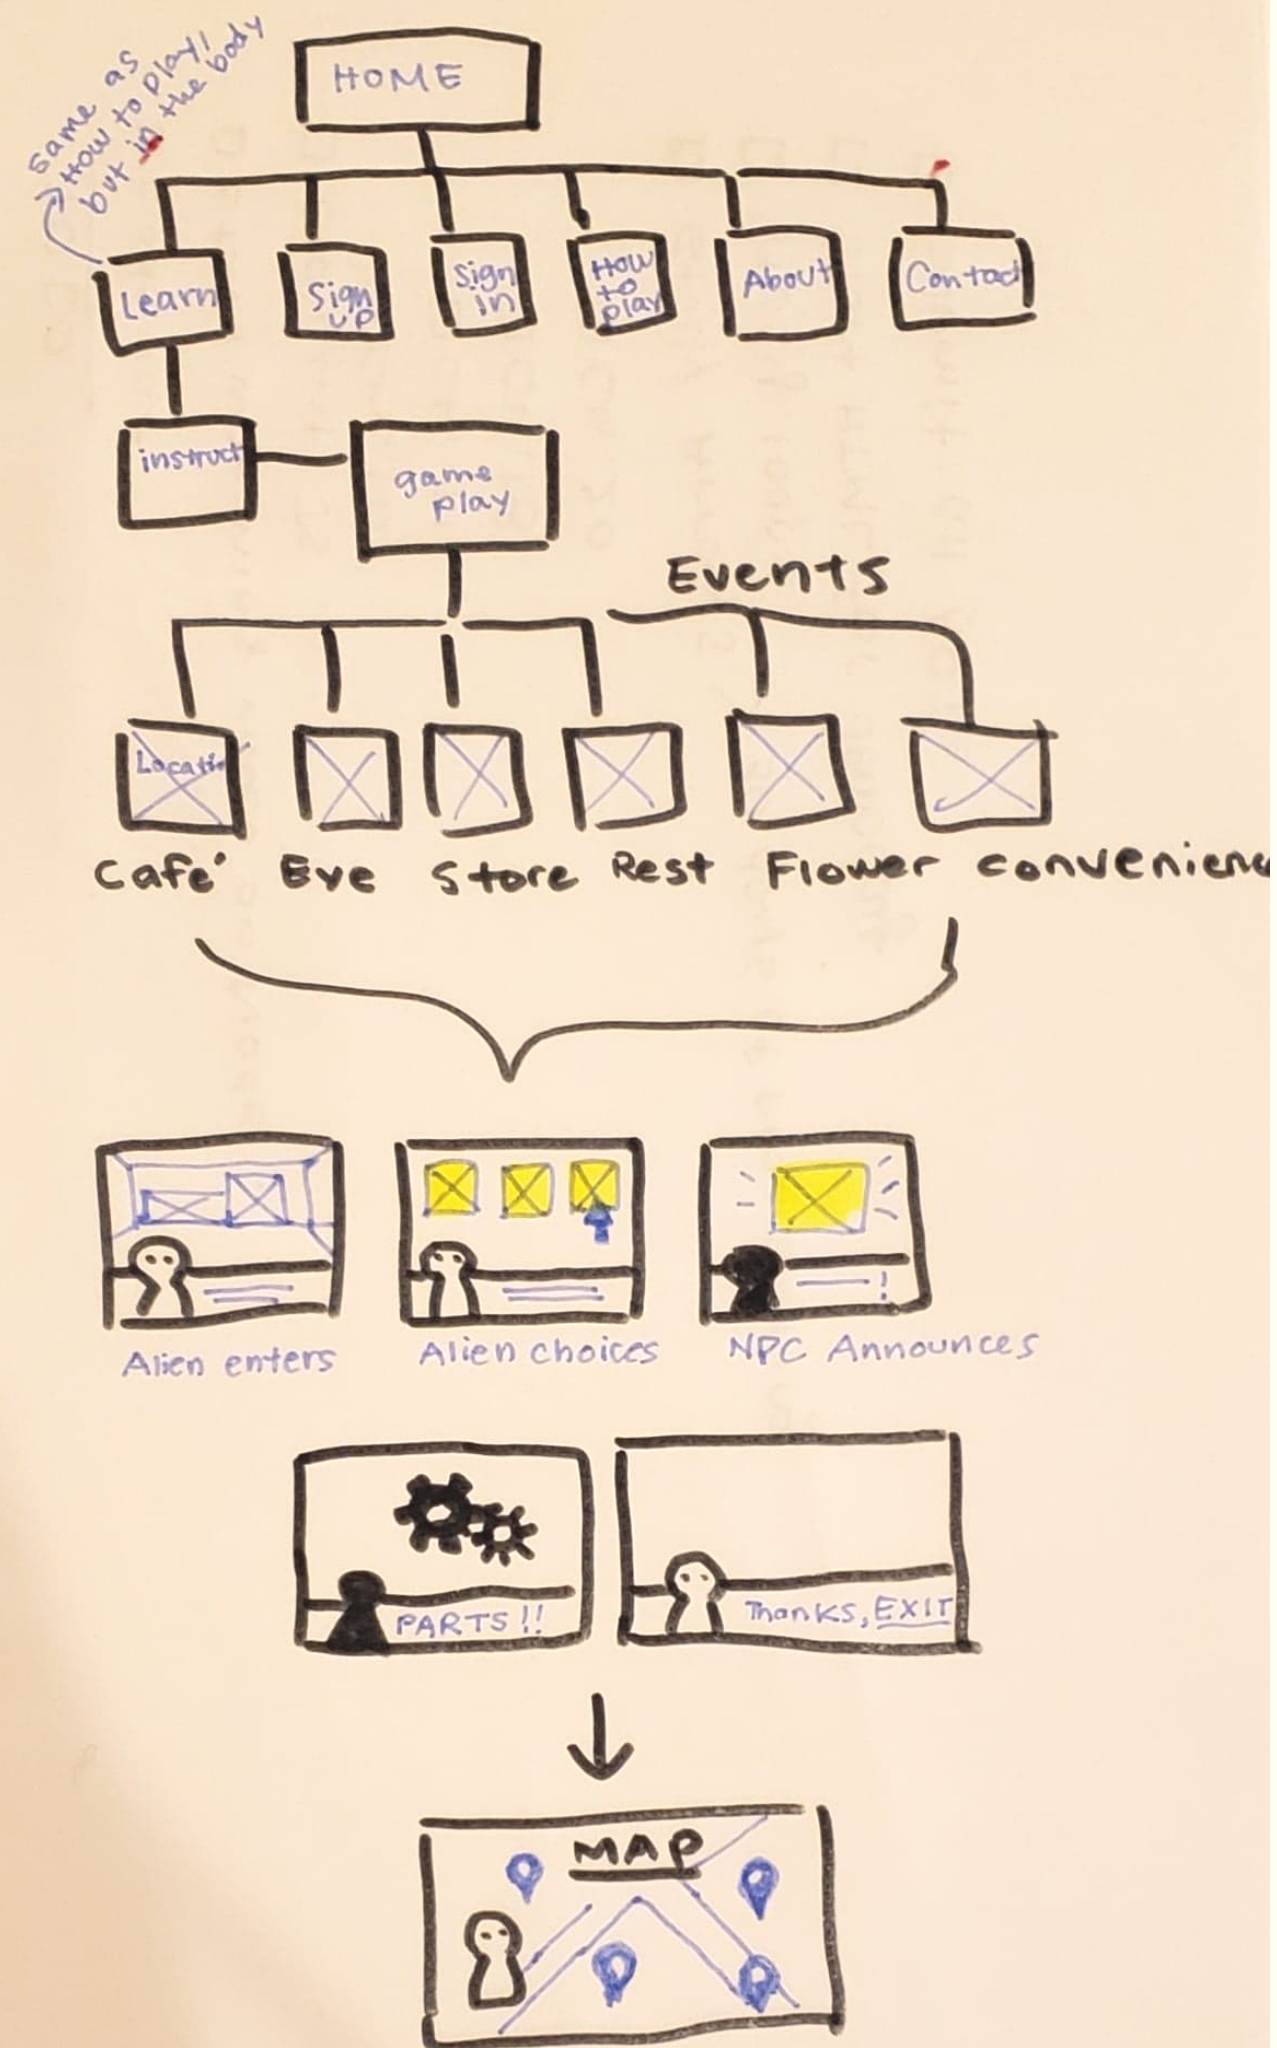 same as
How to play,
but in the body
HOME
Learn
Sign
up
Sign
in
How
to
play
About
Contact
instruct
game
play
Events
Locatio
Café Eye Store Rest Flower convenienc
Alien enters
Alien choices
NPC Announces
!
PARTS!!
Thanks, EXIT
MAP